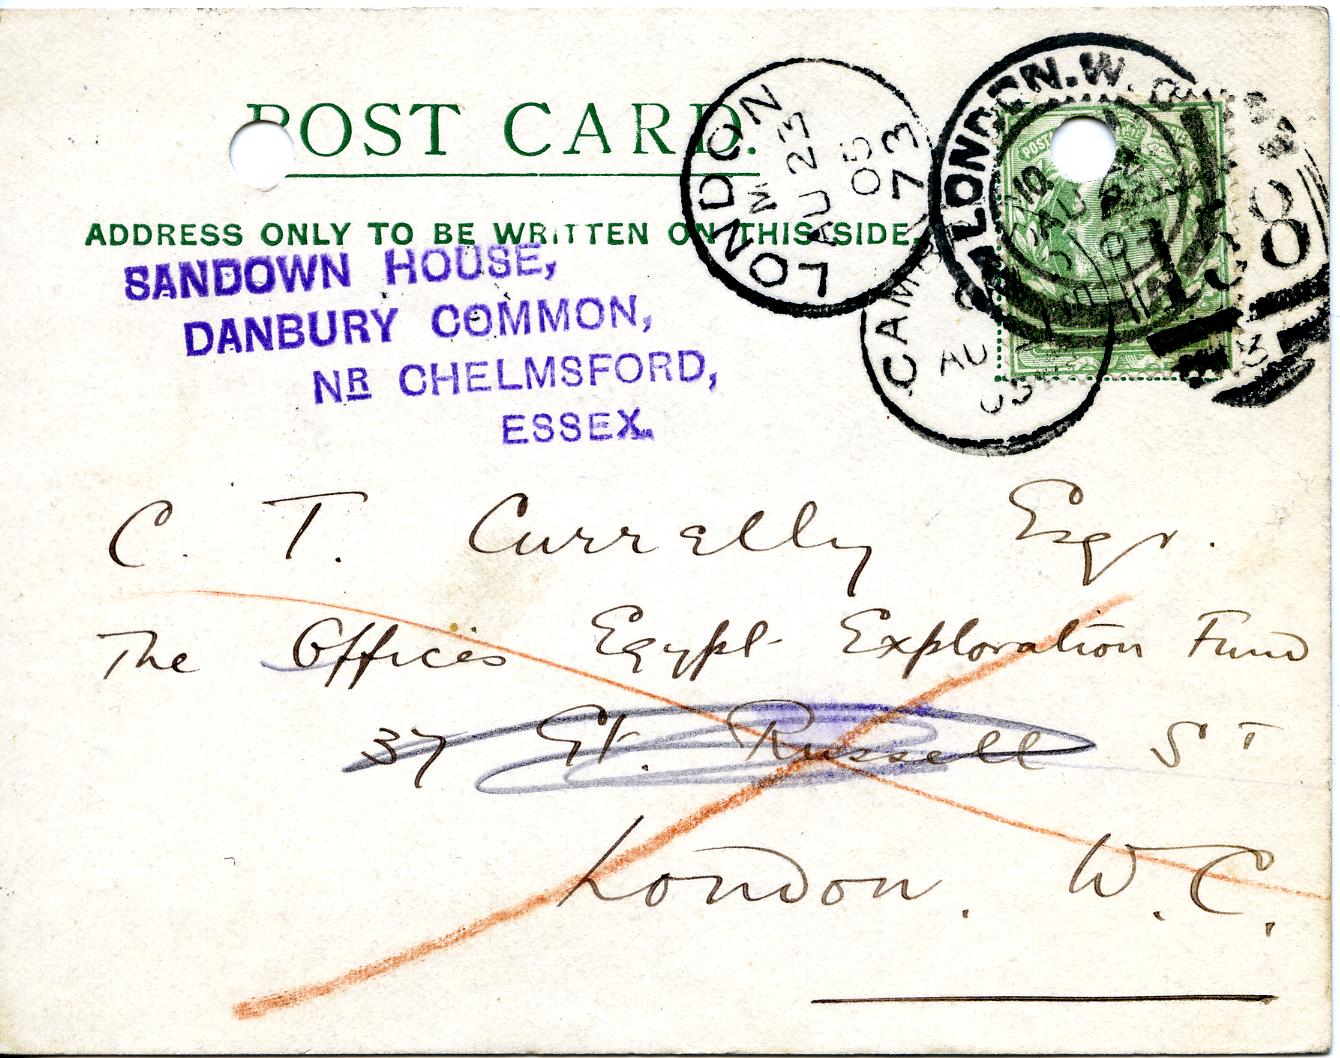 POST CARD.
ADDRESS ONLY TO BE WRITTEN ON THIS SIDE.
SANDOWN HOUSE,
DANBURY COMMON,
NR CHELMSFORD,
ESSEX.
LONDON
M
AU 23
05
73
LONDON. W.
AU
C. T. Currelly Esqr.
The Offices Egypt Exploration Fund
37 Gt. Russell St
London. W.C.